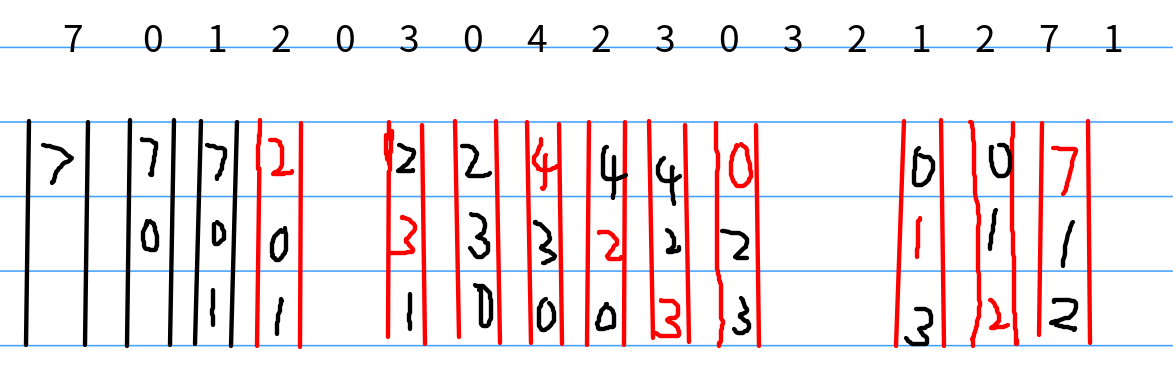 7 0 1 2 0 3 0 4 2 3 0 3 2 1 2 7 1
7 7 7 2 2 2 4 4 4 0 0 0 7
0 0 0 3 3 3 2 2 2 1 1 1
1 1 1 0 0 0 3 3 3 2 2